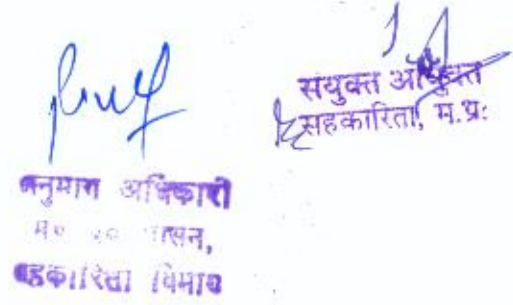 संयुक्त आयुक्त
सहकारिता, म.प्र.
अनुभाग अधिकारी
म० प्र० शासन,
सहकारिता विभाग